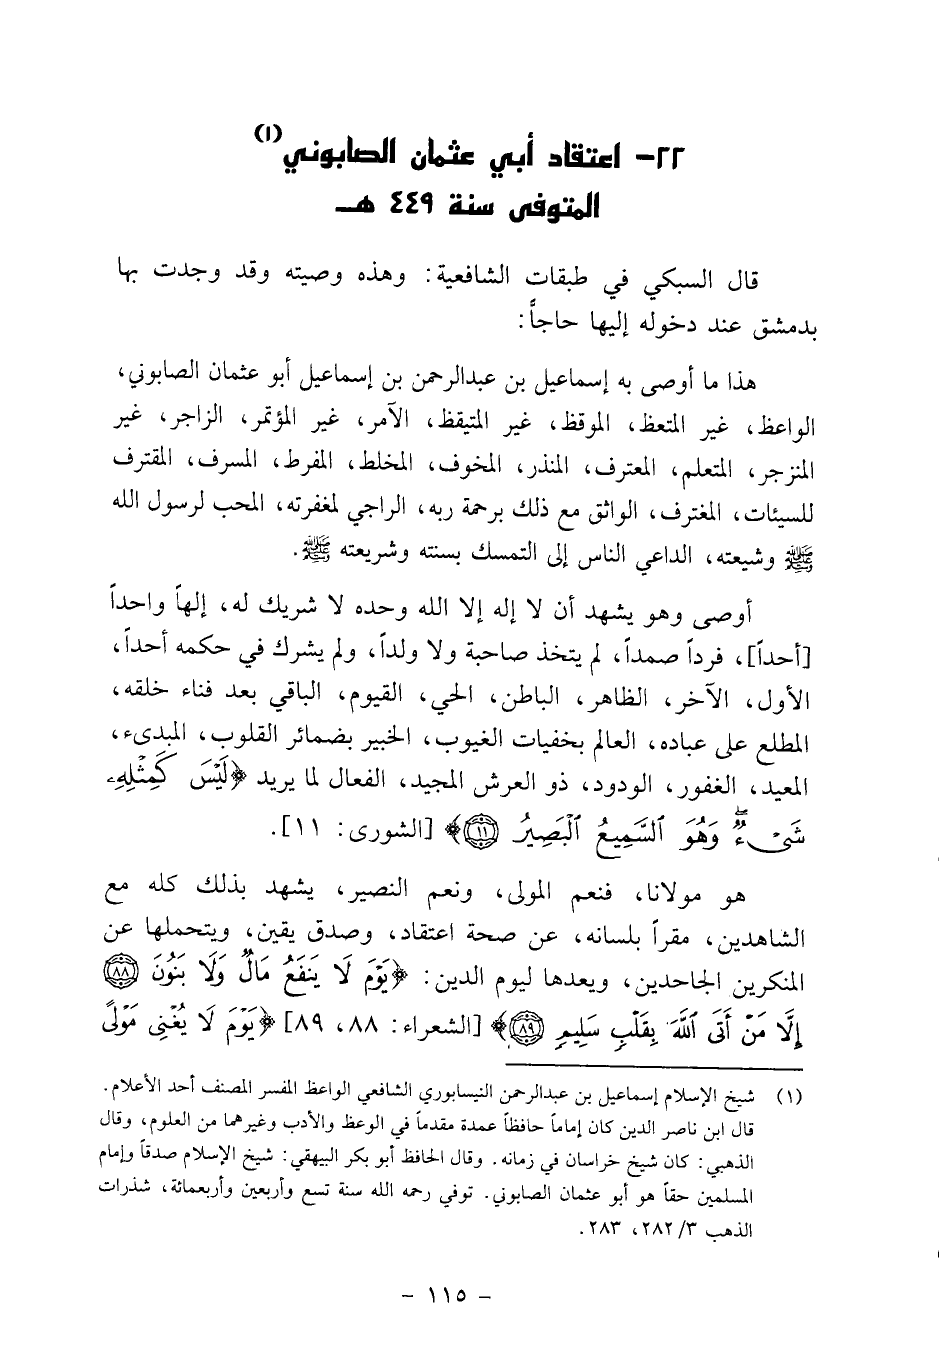 ٢٢- اعتقاد أبي عثمان الصابوني(١)
المتوفى سنة ٤٤٩ هـ
قال السبكي في طبقات الشافعية: وهذه وصيته وقد وجدت بها
بدمشق عند دخوله إليها حاجاً:
هذا ما أوصى به إسماعيل بن عبدالرحمن بن إسماعيل أبو عثمان الصابوني،
الواعظ، غير المتعظ، الموقظ، غير المتيقظ، الآمر، غير المؤتمر، الزاجر، غير
المنزجر، المتعلم، المعترف، المنذر، المخوف، المخلط، المفرط، المسرف، المقترف
للسيئات، المغترف، الواثق مع ذلك برحمة ربه، الراجي لمغفرته، المحب لرسول الله
ﷺ وشيعته، الداعي الناس إلى التمسك بسنته وشريعته ﷺ.
أوصى وهو يشهد أن لا إله إلا الله وحده لا شريك له، إلهاً واحداً
[أحداً]، فرداً صمداً، لم يتخذ صاحبة ولا ولداً، ولم يشرك في حكمه أحداً،
الأول، الآخر، الظاهر، الباطن، الحي، القيوم، الباقي بعد فناء خلقه،
المطلع على عباده، العالم بخفيات الغيوب، الخبير بضمائر القلوب، المبدىء،
المعيد، الغفور، الودود، ذو العرش المجيد، الفعال لما يريد ﴿لَيْسَ كَمِثْلِهِۦ
شَىْءٌ ۖ وَهُوَ ٱلسَّمِيعُ ٱلْبَصِيرُ ۝١١﴾ [الشورى: ١١].
هو مولانا، فنعم المولى، ونعم النصير، يشهد بذلك كله مع
الشاهدين، مقراً بلسانه، عن صحة اعتقاد، وصدق يقين، ويتحملها عن
المنكرين الجاحدين، ويعدها ليوم الدين: ﴿يَوْمَ لَا يَنفَعُ مَالٌ وَلَا بَنُونَ ۝٨٨
إِلَّا مَنْ أَتَى ٱللَّهَ بِقَلْبٍ سَلِيمٍ ۝٨٩﴾ [الشعراء: ٨٨، ٨٩] ﴿يَوْمَ لَا يُغْنِى مَوْلًى
(١) شيخ الإسلام إسماعيل بن عبدالرحمن النيسابوري الشافعي الواعظ المفسر المصنف أحد الأعلام.
قال ابن ناصر الدين كان إماماً حافظاً عمدة مقدماً في الوعظ والأدب وغيرهما من العلوم، وقال
الذهبي: كان شيخ خراسان في زمانه. وقال الحافظ أبو بكر البيهقي: شيخ الإسلام صدقاً وإمام
المسلمين حقاً هو أبو عثمان الصابوني. توفي رحمه الله سنة تسع وأربعين وأربعمائة، شذرات
الذهب ٣/ ٢٨٢، ٢٨٣.
- ١١٥ -